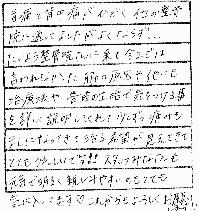 首痛と肩の痛がひどく 他の整骨
院に通ってましたがよくならず…
たいよう整骨院さんに来て今では
言われなかった筋の疲労や他にも
治療法や普段の生活で気をつける事
を詳しく説明してくれて少しずつ痛みも
なくなってきてる希望が見えてきて
とてもうれしいです!! スタッフみなさんも
元気で明るく親しみやすいのもとても
気に入ってます♡これからもよろしくお願